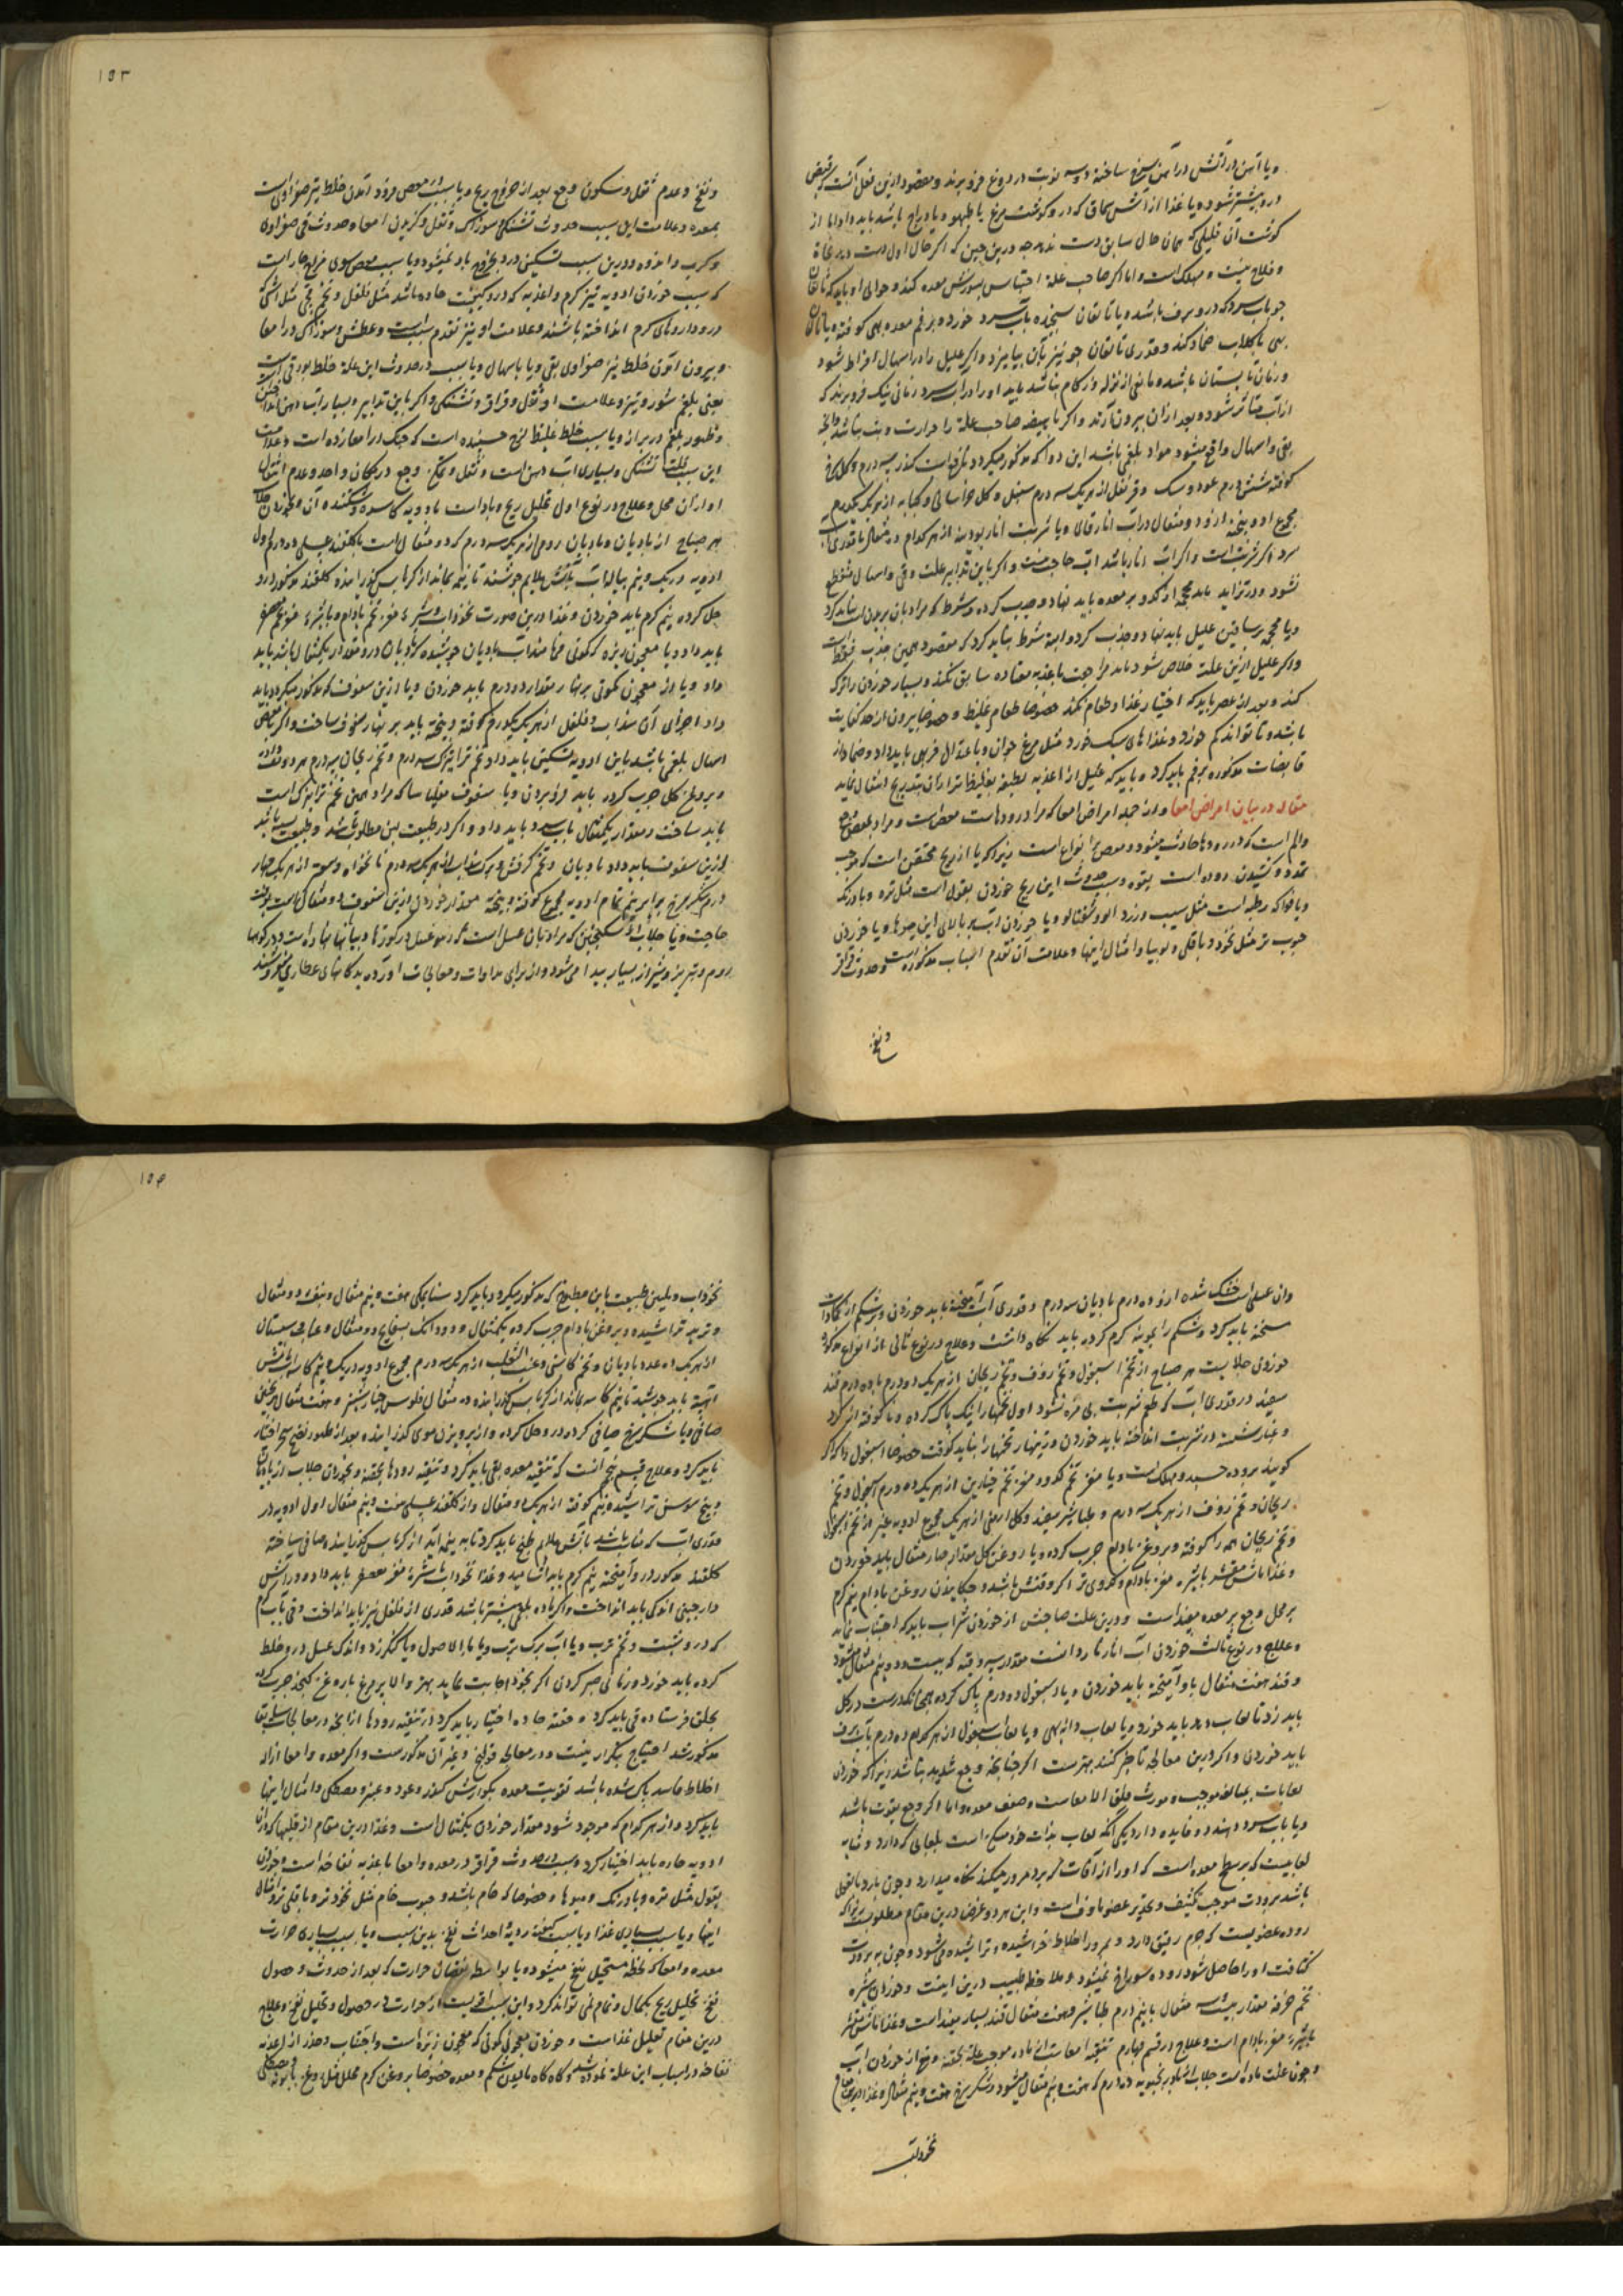 ویا آهن در آتش سرخ ساخته دو سه نوبت در دوغ فرو برند ومقصود ازین فعل آنست که قبض
درو بیشتر شود ویا غذا از آش سماق که درو گوشت مرغ یا طیهو ویا دراج باشد باید داد اما از
گوشت آن قلیلی که همان حال سابق دست ندهد چه درین حین که اگر حال اول دست دهد نجاة
وفلاح نیست و مهلک است واما اگر صاحب علة احتباس بسوزش معده کند وحوالی او باید که
جو باب سرد که درو برف باشد ویا تالقان سنجیده باب سرد خورد وبر فم معده بهی کوفته ویا
بهی با گلاب ضماد کند وقدری تالقان جو نیز بآن بیامیزد واگر علیل را در اسهال افراط شود
وزمان تابستان باشد ومانعی از نزله وزکام نباشد باید او را در آب سرد زمانی نیک فرو برند که
از آب متاثر شود وبعد از آن بیرون آرند واگر با هیضه صاحب علة را حرارت وتب نباشد وآنچه
بقی واسهال واقع میشود مواد بلغمی باشد این دوا که مذکور میگردد نافع است کندر سه درم وگل سرخ
کوفته شش درم عود ومسک وقرنفل از هر یک سه درم سنبل وگل خراسانی وکبابه از هر یک یکدرم
مجموع ادویه پخته ازو دو مثقال در آب انار قالی ویا شربت انار بودینه از هر کدام ده مثقال با قدری آب
سرد اگر شربت است واگر آب انار باشد آب حاجت نیست واگر باین تدابیر علت وقی واسهال منقطع
نشود ودر تزاید باشد محجمه از کدو بر معده باید نهاد وجذب کرد وشرط که مراد بآن بریدن است نباید کرد
ویا محجمه بر ساقین علیل باید نهاد وجذب کرد والبته شرط نباید کرد که مقصود همین جذب فقط است
واگر علیل ازین علت خلاص شود باید مراجعت باغذیه معتاده سابق نکند وبسیار خوردن را ترک
کند وبعد از عصر باید که اختیار غذا وطعام نکند خصوصا طعام غلیظ وخصوصا بیرون از حد کفایت
باشد وتا تواند کم خورد وغذاهای سبک خورد مثل مرغ جوان وبا اعتدال فربهی باید داد وضماد از
قابضات مذکوره بر فم باید کرد وباید که علیل از اغذیه لطیفه بغلیظ‌تر از آن بتدریج انتقال نماید
مقاله در بیان امراض امعا واز جمله امراض امعا که مراد رودهاست مغص است ومراد بمغص وجع
والم است که در رودها حادث میشود ومغص را انواع است زیرا که یا از ریح محتقن است که موجب
تمدد وکشیدن روده است بقوة وسبب حدوث این ریح خوردن بقول است مثل تره وبادرنگ
ویا فواکه رطبه است مثل سیب وزرد آلو وشفتالو ویا خوردن آب بر بالای این میوها ویا خوردن
حبوب تر مثل نخود وباقلی ولوبیا وامثال اینها وعلامت آن تقدم اسباب مذکوره است وحدوث قراقر
ونفخ
١٥٣
ونفخ وعدم ثقل وسکون وجع بعد از خروج ریح ویا سبب مغص فرود آمدن خلط تیز صفراوی است
بمعده وعلامت این سبب حدوث تشنگی وسوزش وثقل وگزیدن امعا وحدوث قی صفراوی
وکرب واندوه ودرین سبب تسکین درد بخروج باد نمیشود ویا سبب مغص سوی مزاج حار است
که سبب خوردن ادویه تیز گرم واغذیه که درو کیفیت حاده باشد مثل فلفل ونخ ومی مثل آشی که
درو داروهای گرم انداخته باشند وعلامت او نیز تقدم سبب است وعطش وسوزش در امعا
وبیرون آمدن خلط تیز صفراوی بقی ویا باسهال ویا سبب در حدوث این علة خلط بورقی است
یعنی بلغم شور وتیز وعلامت او ثقل وقراقر وتشنگی
وظهور بلغم در براز ویا سبب خلط غلیظ لزج چسبنده است که چنگ در امعا زده است وعلامت
این سبب قلت تشنگی وبسیاری آب دهن است وثقل وتمکن وجع در یکمکان واحد وعدم انتقال
او از آن محل وعلاج در نوع اول تحلیل ریح وباد است بادویه کاسره وشکننده آن وخوردن جلاب
بهر صباح از بادیان وبادیان رومی از هر یک سه درم که دو مثقال است با گلقند عسلی ده درم اول
ادویه در یک ونیم پیاله آب بآتش ملایم جوشند تا نیم بماند از کرباس گذرانیده گلقند مذکور درو
حل کرده نیم گرم باید خوردن وغذا درین صورت نخوداب وشیره مغز تخم بادام ویا شیره مغز تخم معصفر
باید داد ویا معجون زیره که کمونی خوانند آب بادیان جوشیده که بادیان درو مقدار یکمثقال باشد باید
داد ویا از معجون کمونی بر نهار مقدار دو درم باید خوردن ویا ازین سفوف که مذکور میگردد باید
داد اجزای آن سداب وفلفل از هر یک یکدرم کوفته وبیخته باید بر نهار سفوف ساخت واگر با مغص
اسهال بلغمی باشد باین ادویه تسکین باید داد تخم ترا تیزک سه درم وتخم ریحان سه درم هر دو تفت داده
وبروغن گل چرب کرده باید فرو بردن ویا سفوف مقلیاثا که مراد همین تخم ترا تیزک است
باید ساخت ومقدار یکمثقال باب سرد باید داد واگر در طبیعت لین مطلوب باشد وطبیعت بسته باشد
ازین سفوف باید داد بادیان وتخم کرفس وبرگ سداب از هر یک سه درم نانخواه وسعتر از هر یک چهار
درم شکر سرخ برابر نیم تمام ادویه مجموع کوفته وبیخته مقدار خوردن ازین سفوف دو مثقال است بوقت
حاجت ویا جلاب از سکنجبین که مراد بآن عسل است
روم وتبریز وشیراز بسیار پیدا می‌شود واز برای مداوات ومعالجات آورده بدکانهای عطاری میفروشند
وآن عسلی است خشک شده ازو ده درم بادیان سه درم وقدری آب آمیخته باید خوردن وبر شکم از کمادات
سخنه باید کرد وشکم را بپوشه گرم کرده باید نگاه داشت وعلاج در نوع ثانی از انواع مذکوره
خوردن جلاب است بهر صباح از تخم اسبغول وتخم زوف وتخم ریحان از هر یک دو درم با ده درم قند
سفید در قدری آب که طعم شربت بی مزه نشود اول تخمها را نیک پاک کرده ونا کوفته از گرد
وغبار شسته در شربت انداخته باید خوردن وزینهار تخمها را نباید کوفت خصوصا اسبغول را که اگر
کوبند بروده چسبد ومهلک است ویا مغز تخم کدو ومغز تخم خیارین از هر یک ده درم اسبغول وتخم
ریحان وتخم زوف از هر یک سه درم وطباشیر سفید وگل ارمنی از هر یک مجموع ادویه غیر از تخم اسبغول
وتخم ریحان همه را کوفته وبروغن بادام چرب کرده ویا روغن گل مقدار چهار مثقال باید خوردن
وغذا ماش مقشر با شیره مغز بادام وکدوی تر اگر وقتش باشد وچکانیدن روغن بادام نیم گرم
بر محل وجع بر معده مفید است ودرین علت صاحبش از خوردن شراب باید که اجتناب نماید
وعلاج در نوع ثالث خوردن آب انار نار دانست مقدار سه وقیه که بیست ودو نیم مثقال میشود
وقند هفت مثقال باو آمیخته باید خوردن ویا اسبغول دو درم پاک کرده همچنانکه درست در گل
باید زد تا لعاب دهد باید خورد ویا لعاب دانه بهی ویا لعاب اسبغول از هر کدام ده درم بآب برف
باید خوردن واگر درین معالجه تاخیر کنند بهترست اگر چنانچه وجع شدید نباشد زیرا که خوردن
لعابات بمبالغه موجب ومورث زلق الامعاست وضعف معده واما اگر وجع بقوت باشد
ویا باب سرد دهند دو فایده دارد یکی آنکه لعاب بذات خود مسکن است بلعابی که دارد وثانیه
لعابیست که بر سطح معده است که او را از آفات که برو مرور میکند نگاه میدارد وچون بارد بالفعل
باشد برودت موجب تکثیف وتخدیر عضو ماوف است واین هر دو غرض درین مقام مطلوبست زیرا که
روده عضویست که جرم رقیق دارد وبمرور اخلاط خراشیده وتراشیده می‌شود وچون به برودت
کثافت او را حاصل شود روده سوراخ نمیشود وملاحظه طبیب درین اینست وخوردن شیره
تخم خرفه مقدار بیست مثقال با نیم درم طباشیر وهفت مثقال قند بسیار مفید است وغذا ماش مقشر
با شیره مغز بادام است وعلاج در قسم چهارم تنقیه امعاست از ماده موجب علة بحقنه ومنع از خوردن آب
وچون علت ماده است جلاب از بادرنجبویه ده درم که هفت ونیم مثقال میشود وشکر سرخ هفت ونیم مثقال وغذا درین مقام
نخوداب
١٥٤
نخوداب وتلیین طبیعت باین مطبوخ که مذکور میگردد باید کرد سنا مکی هفت ونیم مثقال وبنفشه دو مثقال
وتربد تراشیده وبروغن بادام چرب کرده یکمثقال ودو دانگ بسفایج دو مثقال وعناب سپستان
از هر یک ده عدد بادیان وتخم کاسنی وعنب الثعلب از هر یک سه درم مجموع ادویه در یک ونیم کاسه آب بآتش
آهسته باید جوشید تا نیم کاسه بماند از کرباس گذرانیده ده مثقال فلوس خیار شنبر وهفت مثقال ترنجبین
صافی ویا شکر سرخ صافی کرده درو حل کرده واز پرویزن موی گذرانیده بعد از ظهور نضج سحر اختیار
باید کرد وعلاج قسم پنجم آنست که تنقیه معده بقی باید کرد وتنقیه رودها بحقنه وبخوردن جلاب از بادیان
وبیخ سوسن تراشیده نیم کوفته از هر یک دو مثقال واز گلقند عسلی هفت ونیم مثقال اول ادویه در
قدری آب که مناسب باشد بآتش ملایم طبخ باید کرد تا به نیمه آید از کرباس گذرانیده وصافی ساخته
گلقند مذکور درو آمیخته نیم گرم باید آشامید وغذا نخوداب با شیره مغز معصفر باید داد ودر آش
دارچینی اندکی باید انداخت واگر ماده بلغمی بیشتر باشد قدری از فلفل نیز باید انداخت وقی بآب گرم
که درو شبت وتخم ترب ویا آب برگ ترب ویا ماء الاصول ویا کنکرزد واندک عسل درو خلط
کرده باید خورد وزمانی صبر کردن اگر بخود اجابت نماید بهتر والا پر مرغ با روغن کنجد چرب کرده
بحلق فرستاده قی باید کرد وحقنه حاده اختیار باید کرد در تنقیه رودها از آنچه در معالجات سابق
مذکور شد احتیاج بتکرار نیست ودر معالجه قولنج وغیر آن مذکورست واگر معده وامعا از اله
اخلاط فاسد پاک شده باشد تقویت معده بکوارش کندر وعود وعنبر ومصطکی وامثال اینها
باید کرد واز هر کدام که موجود شود مقدار خوردن یکمثقال است وغذا درین مقام از قلیها که درو
ادویه حاره باید اختیار کرد وسبب در حدوث قراقر در معده وامعا یا اغذیه نفاخه است وخوردن
بقول مثل تره وبادرنگ ومیوها وخصوصا که خام باشد وحبوب خام مثل نخود تر وباقلی تر وامثال
اینها ویا سبب بسیاری غذا ویا سبب کیفیت ردیه احداث نفخ بدین سبب ویا سبب بسیاری حرارت
معده وامعا که غلظه مستحیل بنفخ میشود ویا بواسطه نقصان حرارت که بعد از حدوث وحصول
نفخ تحلیل ریح بکمال وتمام نمی تواند کرد واین سبب اقویست از حرارت در حصول وتحلیل نفخ وعلاج
درین مقام تقلیل غذاست وخوردن معجون کمونی که معجون زیره است واجتناب وحذر از اغذیه
نفاخه در اسباب این علة نموده شد وگاه گاه مالیدن شکم ومعده خصوصا بروغن گرم محلل مثل روغن بابونه ومصطکی